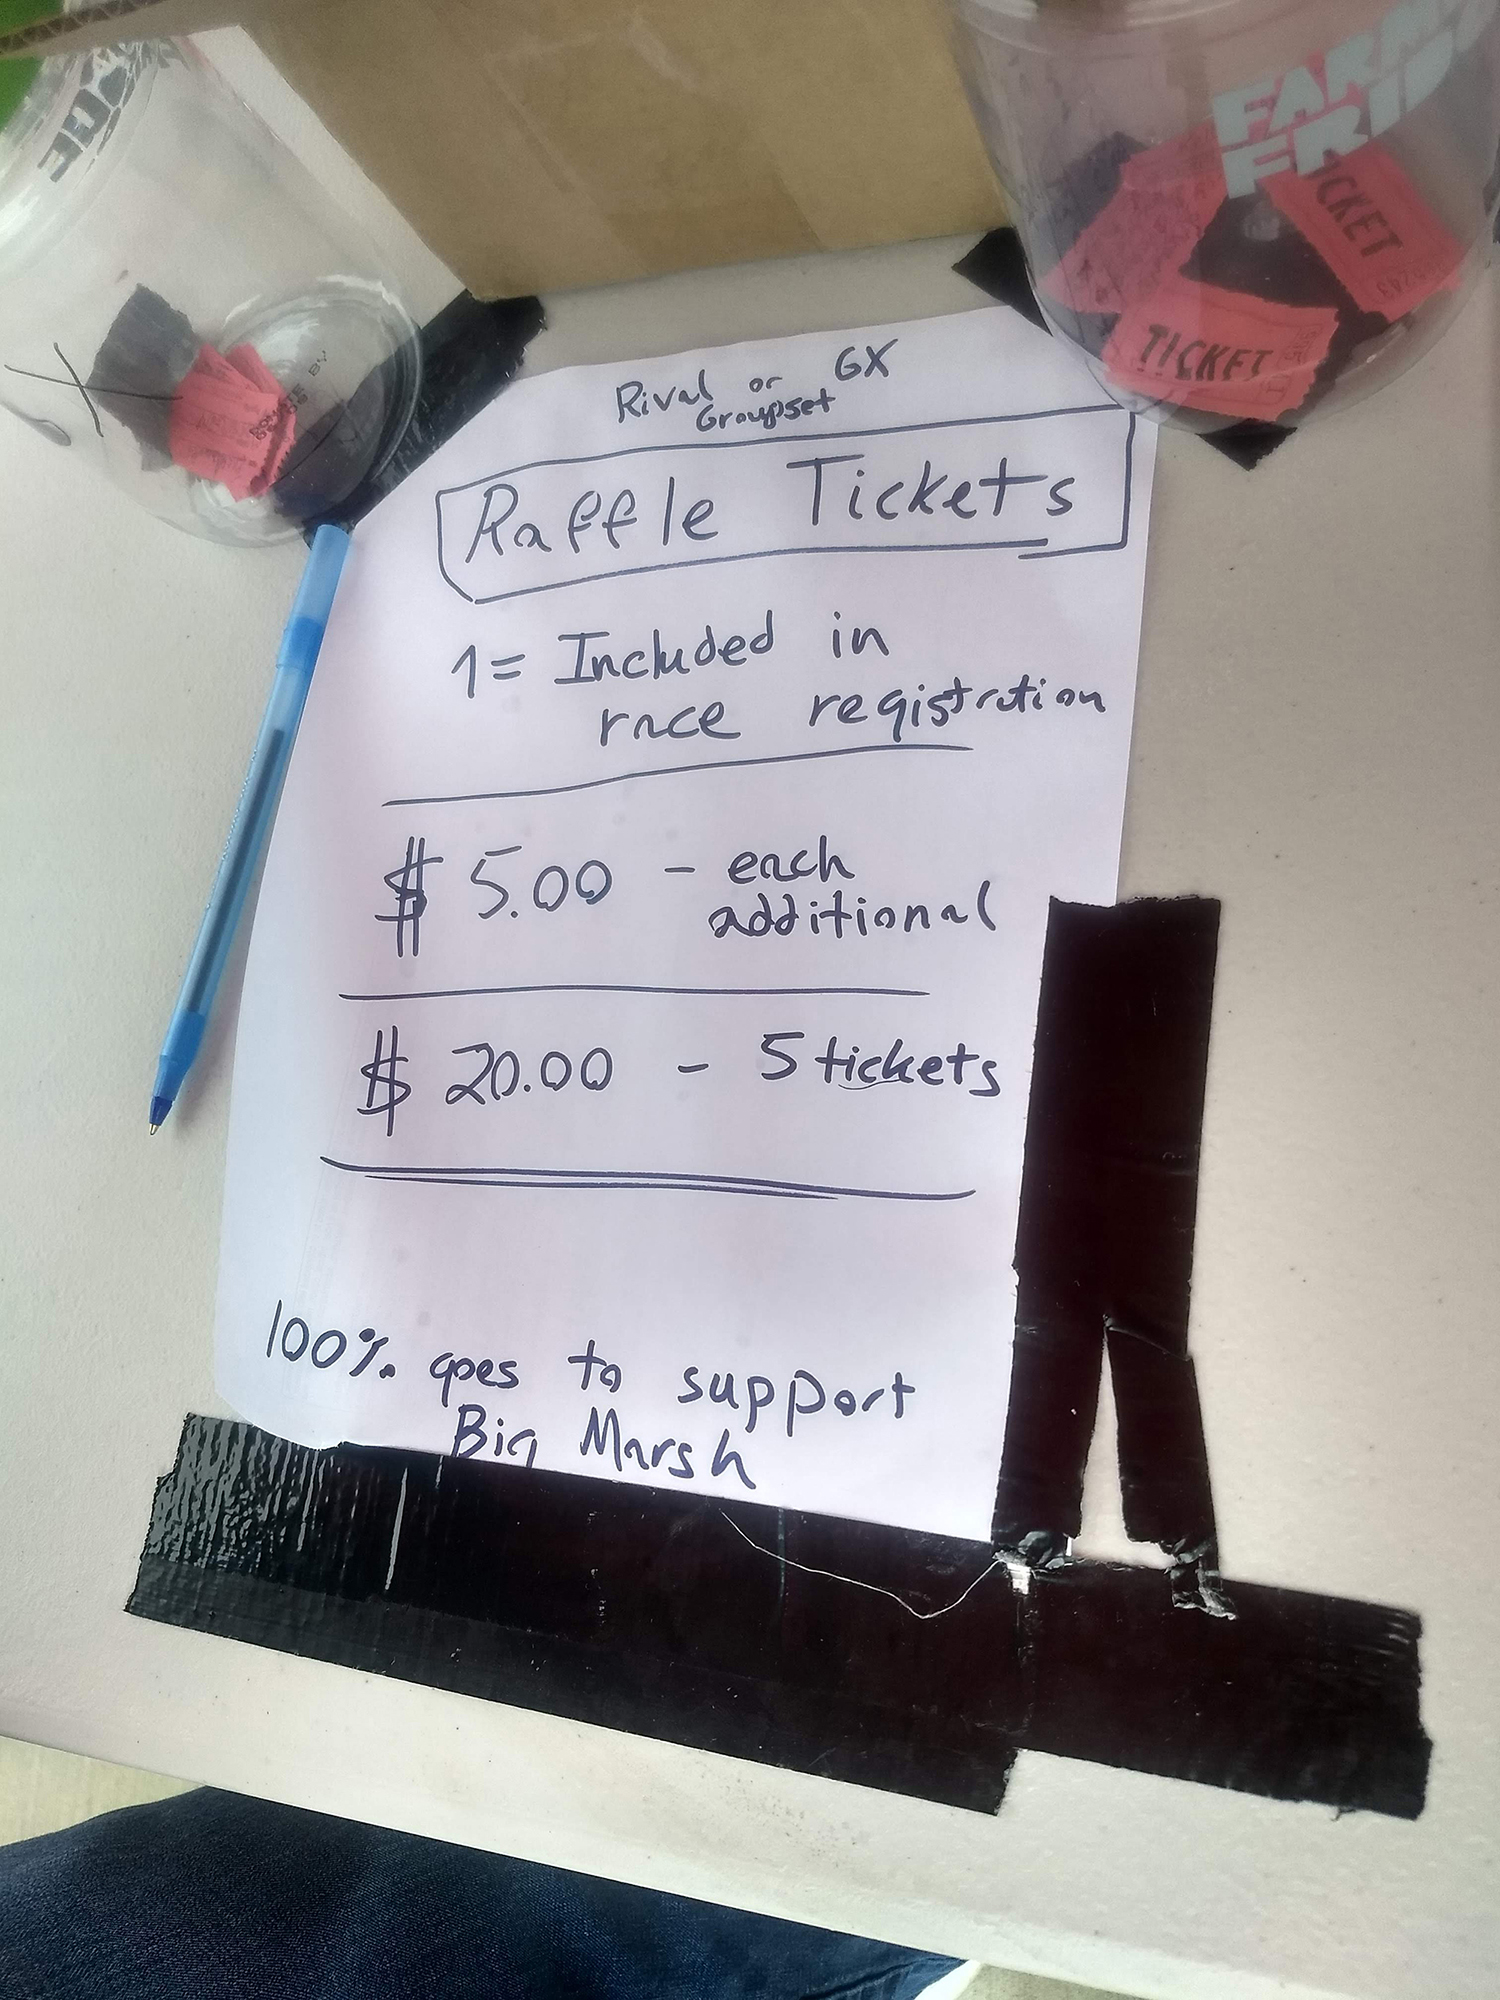 FARM
FRI
TICKET
TICKET
Rival or GX
Groupset
Raffle Tickets
1 = Included in
race registration
$ 5.00 - each
additional
$ 20.00 - 5 tickets
100% goes to support
Big Marsh